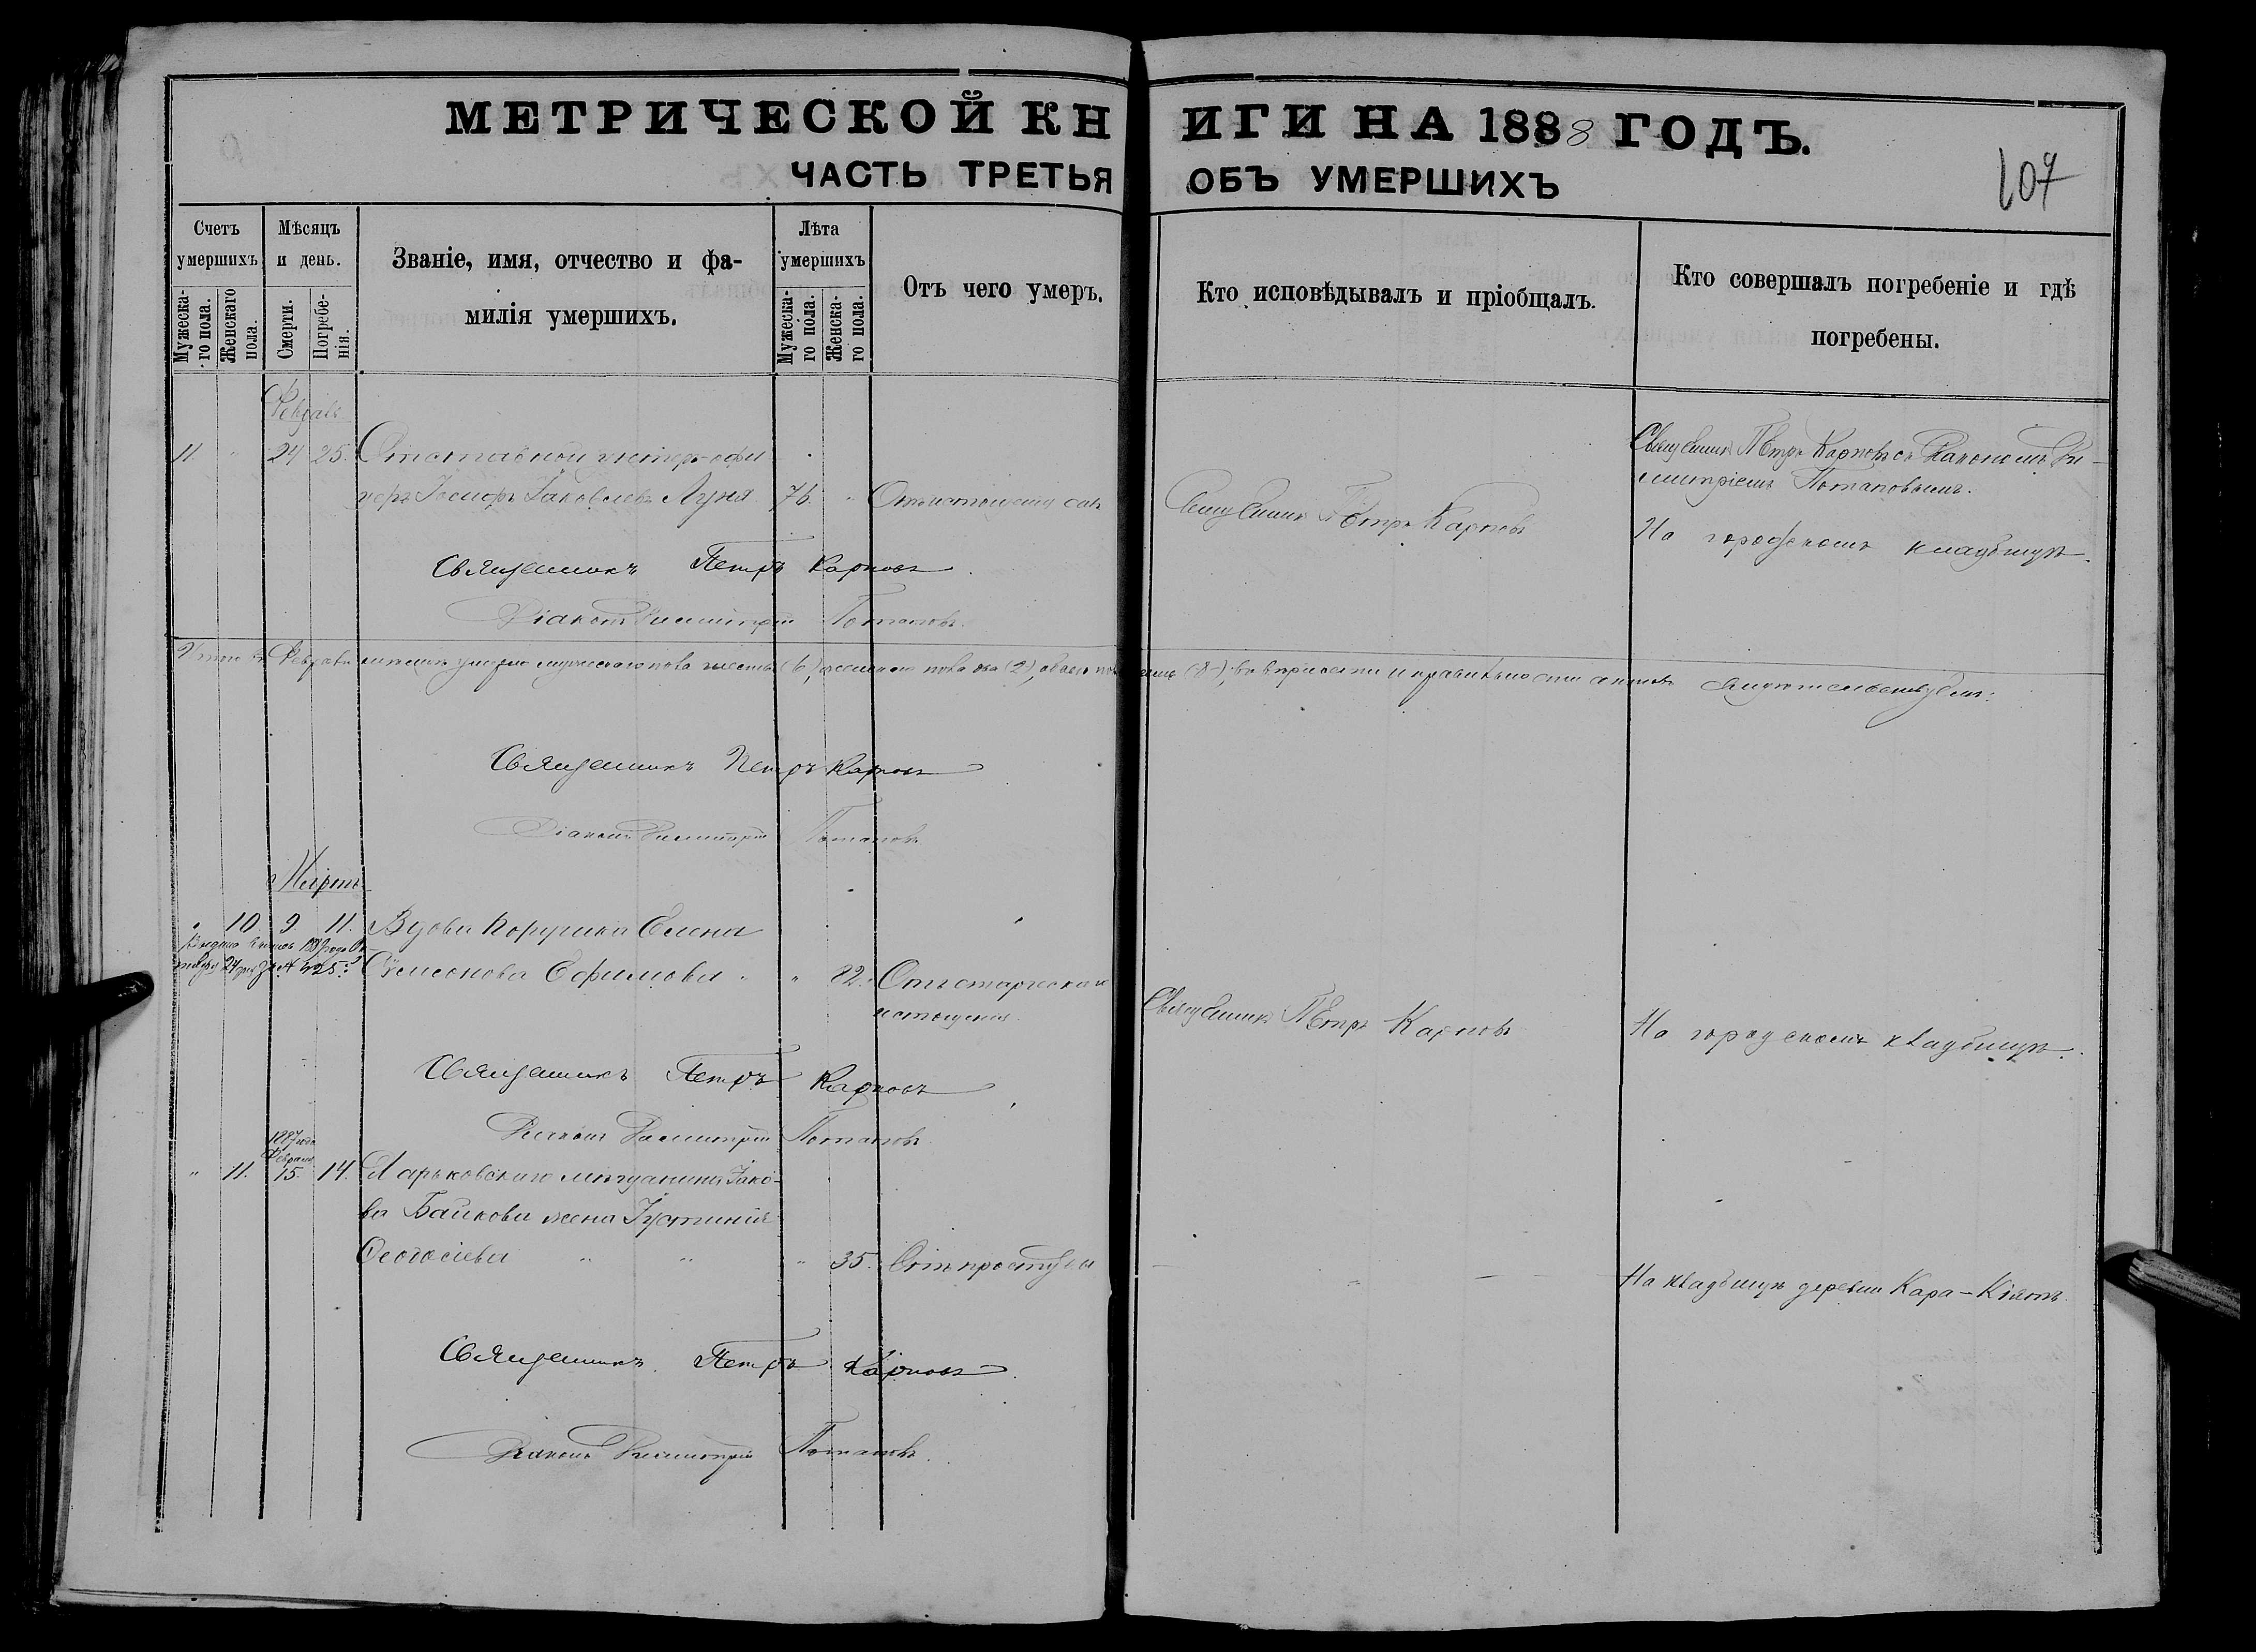 МЕТРИЧЕСКОЙ КНИГИ НА 1888 ГОДЪ.
107
ЧАСТЬ ТРЕТЬЯ ОБЪ УМЕРШИХЪ
Счетъ умершихъ
Мужеска-го пола.
Женскаго пола.
Мѣсяцъ и день.
Смерти.
Погребе-нія.
Званіе, имя, отчество и фа-
милія умершихъ.
Лѣта умершихъ
Мужеска-го пола.
Женска-го пола.
Отъ чего умеръ.
Кто исповѣдывалъ и пріобщалъ.
Кто совершалъ погребеніе и гдѣ
погребены.
Февраль
11. " 24 25. Отставной унтеръ-офи
церъ Іосифъ Іаковлевъ Луня 76. "
Священникъ Петръ Карповъ
Священникъ Петръ Карповъ съ Діакономъ Ди-
митріемъ Потаповымъ.
На городскомъ кладбищѣ.
Священникъ Петръ Карповъ
Діаконъ Димитрій Потаповъ
Итого въ Февралѣ мѣсяцѣ умерло мужескаго пола шесть (6), женскаго пола два (2), обоего пола восемь (8); въ вѣрности и правильности актовъ свидѣтельствуемъ:
Священникъ Петръ Карповъ
Діаконъ Димитрій Потаповъ
Мартъ
" 10. 9. 11. Вдова Елена
Ефимова " 82. Отъ старческаго
истощенія.
Священникъ Петръ Карповъ
На городскомъ кладбищѣ.
Священникъ Петръ Карповъ
Діаконъ Димитрій Потаповъ
1887 года
Февраля
" 11. 15. 14. Харьковскаго мѣщанина Іако-
ва Байкова жена Іустинія
Ѳеодосіева " " " 35. Отъ простуды
На кладбищѣ деревни Кара-Кіятъ.
Священникъ Петръ Карповъ
Діаконъ Димитрій Потаповъ.